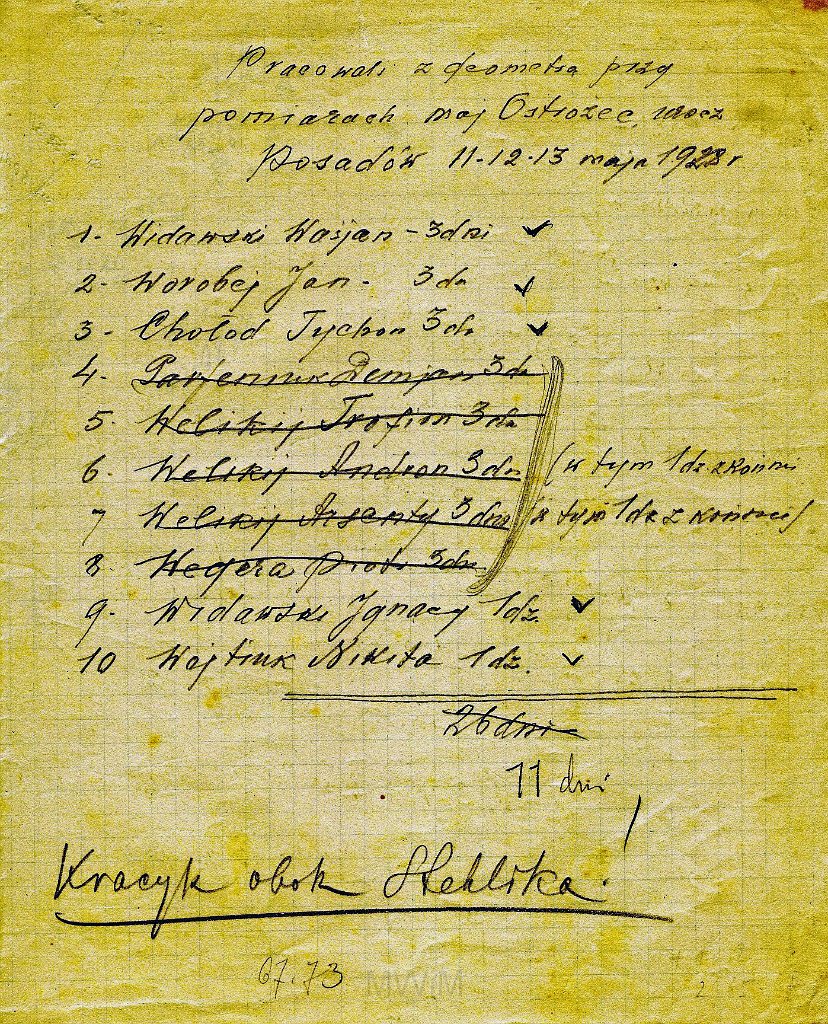 Pracowali z geometrą przy
pomiarach maj Ostrożec, urocz
Posadów 11-12-13 maja 1928 r
1- Widawski Wasjan - 3 dni ✓
2- Worobej Jan - 3 dn ✓
3- Chołod Tychon 3 dn ✓
4- Parfeniuk Demjan 3 dn
5- Welikij Trofion 3 dn
6- Welikij Andron 3 dn (w tym 1 dz z końmi
7 Welikij Arsenty 3 dni (w tym 1 dz z końmi)
8- Wegera Piotr 3 dn
9- Widawski Ignacy 1 dz. ✓
10 Wojtiuk Nikita 1 dz. ✓
26 dni
11 dni
Kracyk obok Stehlika.
67.73
MWM